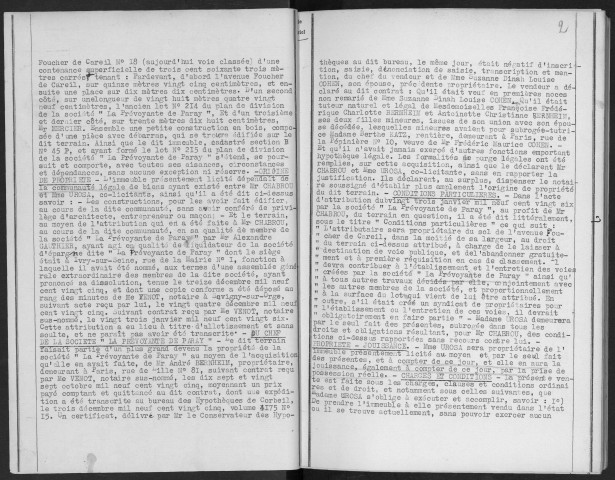 Foucher de Careil N° 18 (aujourd'hui voie classée) d'une
contenance superficielle de trois cent soixante trois mè-
tres carrés, tenant : Pardevant, d'abord l'avenue Foucher
de Careil, sur quinze mètres vingt cinq centimètres, et en-
suite une place sur dix mètres dix centimètres. D'un second
côté, sur une longueur de vingt huit mètres quatre vingt
neuf centimètres, l'ancien lot N° 214 du plan de division
de la société " La Prévoyante de Paray ". Et d'un troisième
et dernier côté, sur trente mètres dix huit centimètres,
Mr MERCIER. Ensemble une petite construction en bois, compo-
sée d'une pièce avec débarras, qui se trouve édifiée sur le
dit terrain. Ainsi que le dit immeuble, cadastré section B
N° 45 P, et ayant formé le lot N° 215 du plan de division
de la société " La Prévoyante de Paray " s'étend, se pour-
suit et comporte, avec toutes ses aisances, circonstances
et dépendances, sans aucune exception ni réserve .- ORIGINE
DE PROPRIETE - L'immeuble présentement licité dépendait de
la communauté légale de biens ayant existé entre Mr CHABROU
et Mme UROSA, co-licitants, ainsi qu'il a été dit ci-dessus
savoir : - Les constructions, pour les avoir fait édifier,
au cours de la dite communauté, sans avoir conféré de privi-
lège d'architecte, entrepreneur ou maçon; - Et le terrain,
au moyen de l'attribution qui en a été faite à Mr CHABROU,
au cours de la dite communauté, en sa qualité de membre de
la société " La Prévoyante de Paray " par Mr Alexandre
GAUTHIER, ayant agi en qualité de liquidateur de la société
d'épargne dite " La Prévoyante de Paray " dont le siège
était à Ivry-sur-Seine, rue de la Mairie N° 1, fonction à
laquelle il avait été nommé, aux termes d'une assemblée géné
rale extraordinaire des membres de la dite société, ayant
prononcé sa dissolution, tenue le treize décembre mil neuf
cent vingt cinq, et dont une copie conforme a été déposée au
rang des minutes de Me VENOT, notaire à Savigny-sur-Orge,
suivant acte reçu par lui, le vingt quatre décembre mil neuf
cent vingt cinq, suivant contrat reçu par Me VENOT, notaire
sus-nommé, le vingt trois janvier mil neuf cent vingt six.
Cette attribution a eu lieu à titre d'allotissement et sans
soulte, et ne paraît pas avoir été transcrite - DU CHEF
DE LA SOCIETE " LA PREVOYANTE DE PARAY " - Le dit terrain
faisait partie d'un plus grand devenu la propriété de la
société " La Prévoyante de Paray " au moyen de l'acquisition
qu'elle en avait faite, de Mr André BERNHEIM, propriétaire,
demeurant à Paris, rue de Lille N° 81, suivant contrat reçu
par Me VENOT, notaire sus-nommé, les dix sept et vingt
sept octobre mil neuf cent vingt cinq, moyennant un prix
payé comptant et quittancé au dit contrat, dont une expédi-
tion a été transcrite au bureau des Hypothèques de Corbeil,
le trois décembre mil neuf cent vingt cinq, volume 4175 N°
15. Un certificat, délivré par Mr le Conservateur des Hypo-
2
thèques au dit bureau, le même jour, était négatif d'inscrip-
tion, saisie, dénonciation de saisie, transcription et men-
tion, du chef du vendeur et de Mme Suzanne Dinah Louise
COHEN, son épouse, précédente propriétaire. Le vendeur a dé-
claré au dit contrat : Qu'il était veuf en premières noces
non remarié de Mme Suzanne Dinah Louise COHEN. Qu'il était
tuteur naturel et légal de Mesdemoiselles Françoise Frédé-
rique Charlotte BERNHEIM et Antoinette Christiane BERNHEIM,
ses deux filles mineures, issues de son union avec son épou-
se décédée, lesquelles mineures avaient pour subrogée-tutri-
ce Madame Berthe KATZ, rentière, demeurant à Paris, rue de
la Pépinière N° 10, veuve de Mr Frédéric Maurice COHEN. -
Et qu'il n'avait jamais exercé d'autres fonctions emportant
hypothèque légale. Les formalités de purge légales ont été
remplies, sur cette acquisition, ainsi que le déclarent Mr
CHABROU et Mme UROSA, co-licitants, sans en rapporter la
justification. Ils déclarent, au surplus, dispenser le notai-
re soussigné d'établir plus amplement l'origine de propriété
du dit terrain. - CONDITIONS PARTICULIERES. - Dans l'acte
d'attribution du vingt trois janvier mil neuf cent vingt six
par la société " La Prévoyante de Paray ", au profit de Mr
CHABROU, du terrain en question, il a été dit littéralement,
sous le titre " Conditions particulières " ce qui suit :
" L'attributaire sera propriétaire du sol de l'avenue Fou-
" cher de Careil, dans la moitié de sa largeur, au droit
" du terrain ci-dessus attribué, à charge de la laisser à
" destination de voie publique, et de l'abandonner gratuite-
" ment et à première réquisition en cas de classement. Il
" devra contribuer à l'établissement et l'entretien des voies
" créées par la société " La Prévoyante de Paray " ainsi qu'
" à tous autres travaux décidés par elle, conjointement avec
" les autres membres de la société, et proportionnellement
" à la surface du lot qui vient de lui être attribué. En
" outre, s'il était créé un syndicat de propriétaires pour
" l'établissement ou l'entretien de ces voies, il devrait
" obligatoirement en faire partie " - Madame UROSA demeurera
par le seul fait des présentes, subrogée dans tous les
droits et obligations résultant, pour Mr CHABROU, des condi-
tions ci-dessus rapportées sans recours contre lui. -
PROPRIETE - JOUISSANCE. - Mme UROSA sera propriétaire de
l'immeuble présentement licité au moyen et par le seul fait
des présentes, et à compter de ce jour, et elle en aura la
jouissance, également à compter de ce jour, par la prise de
possession réelle. - CHARGES ET CONDITIONS - La présente ven-
te est faite sous les charges, clauses et conditions ordinai
res et de droit, et notamment sous celles suivantes, que
Madame UROSA s'oblige à exécuter et accomplir, savoir : 1°)
De prendre l'immeuble à elle présentement vendu dans l'état
où il se trouve actuellement, sans pouvoir exercer aucun